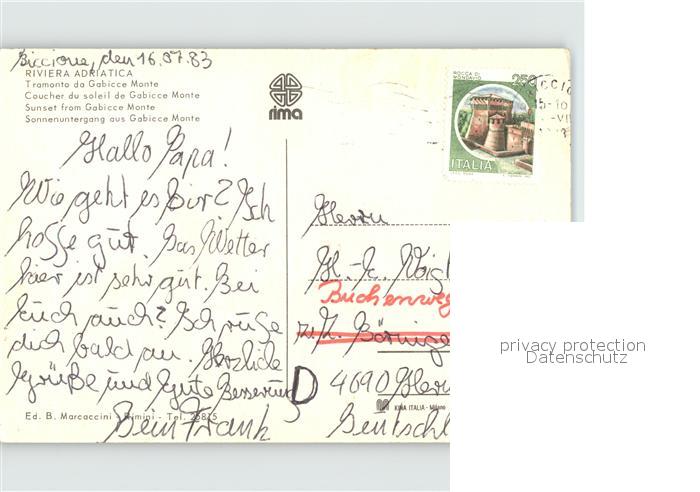 Riccione, den 16.07.83
RIVIERA ADRIATICA
Tramonto da Gabicce Monte
Coucher du soleil de Gabicce Monte
Sunset from Gabicce Monte
Sonnenuntergang aus Gabicce Monte
rima
ROCCA DI
MONDAVIO
250
ITALIA
Hallo Papa!
Wie geht es Dir? Ich
hoffe gut. Das Wetter
hier ist sehr gut. Bei
Euch auch? Ich rufe
dich bald an. Herzliche
Grüße und gute Besserung
Dein Frank
Ed. B. Marcaccini - Rimini - Tel. 25875
Herrn
H.-K. Voigt
Buchenweg
D 4690 Hern
KINA ITALIA - Milano
Deutschl
privacy protection
Datenschutz